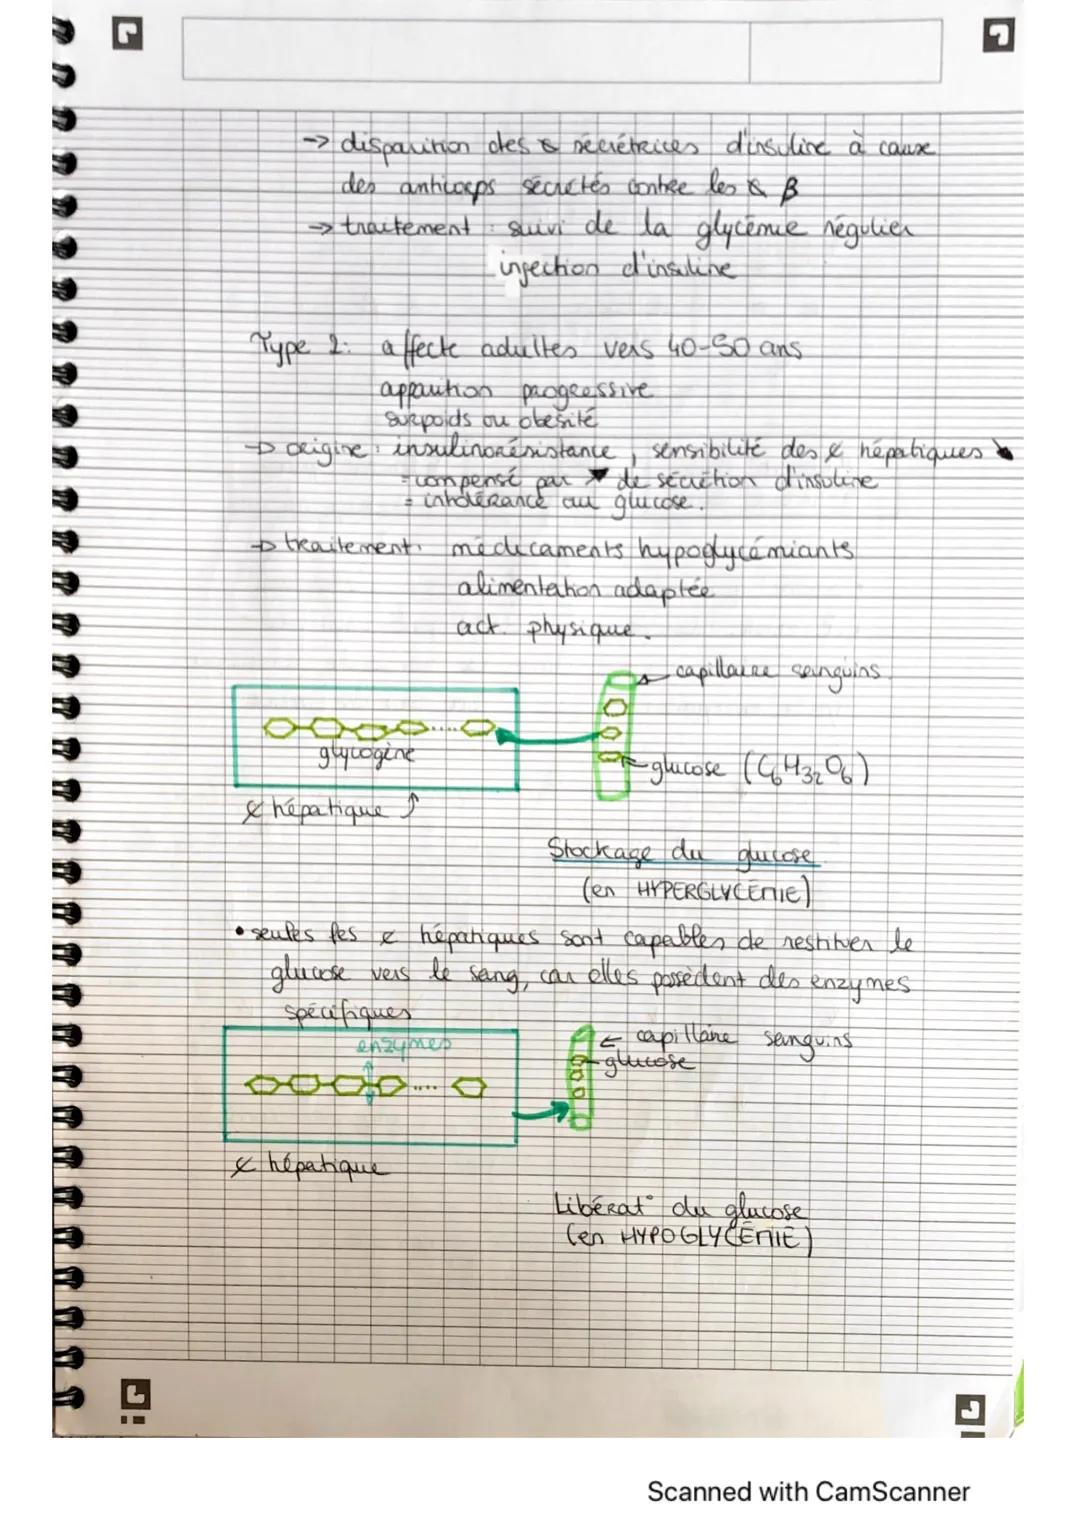 → disparition des ¢ sécrétrices d'insuline à cause
des anticorps sécrétés contre les ¢ β
→ traitement : suivi de la glycémie régulier
injection d'insuline
Type 2: affecte adultes vers 40-50 ans
apparition progressive
surpoids ou obésité
→ origine : insulinorésistance, sensibilité des ¢ hépatiques ↘
= compensé par ↗ de sécrétion d'insuline
= intolérance au glucose.
→ traitement: médicaments hypoglycémiants
alimentation adaptée
act. physique.
capillaire sanguins
glycogène
glucose (C6H32O6)
¢ hépatique
Stockage du glucose
(en HYPERGLYCÉMIE)
• seules les ¢ hépatiques sont capables de restituer le
glucose vers le sang, car elles possèdent des enzymes
spécifiques
enzymes
← capillaire sanguins
glucose
¢ hépatique
Libérat° du glucose
(en HYPOGLYCÉMIE)
Scanned with CamScanner